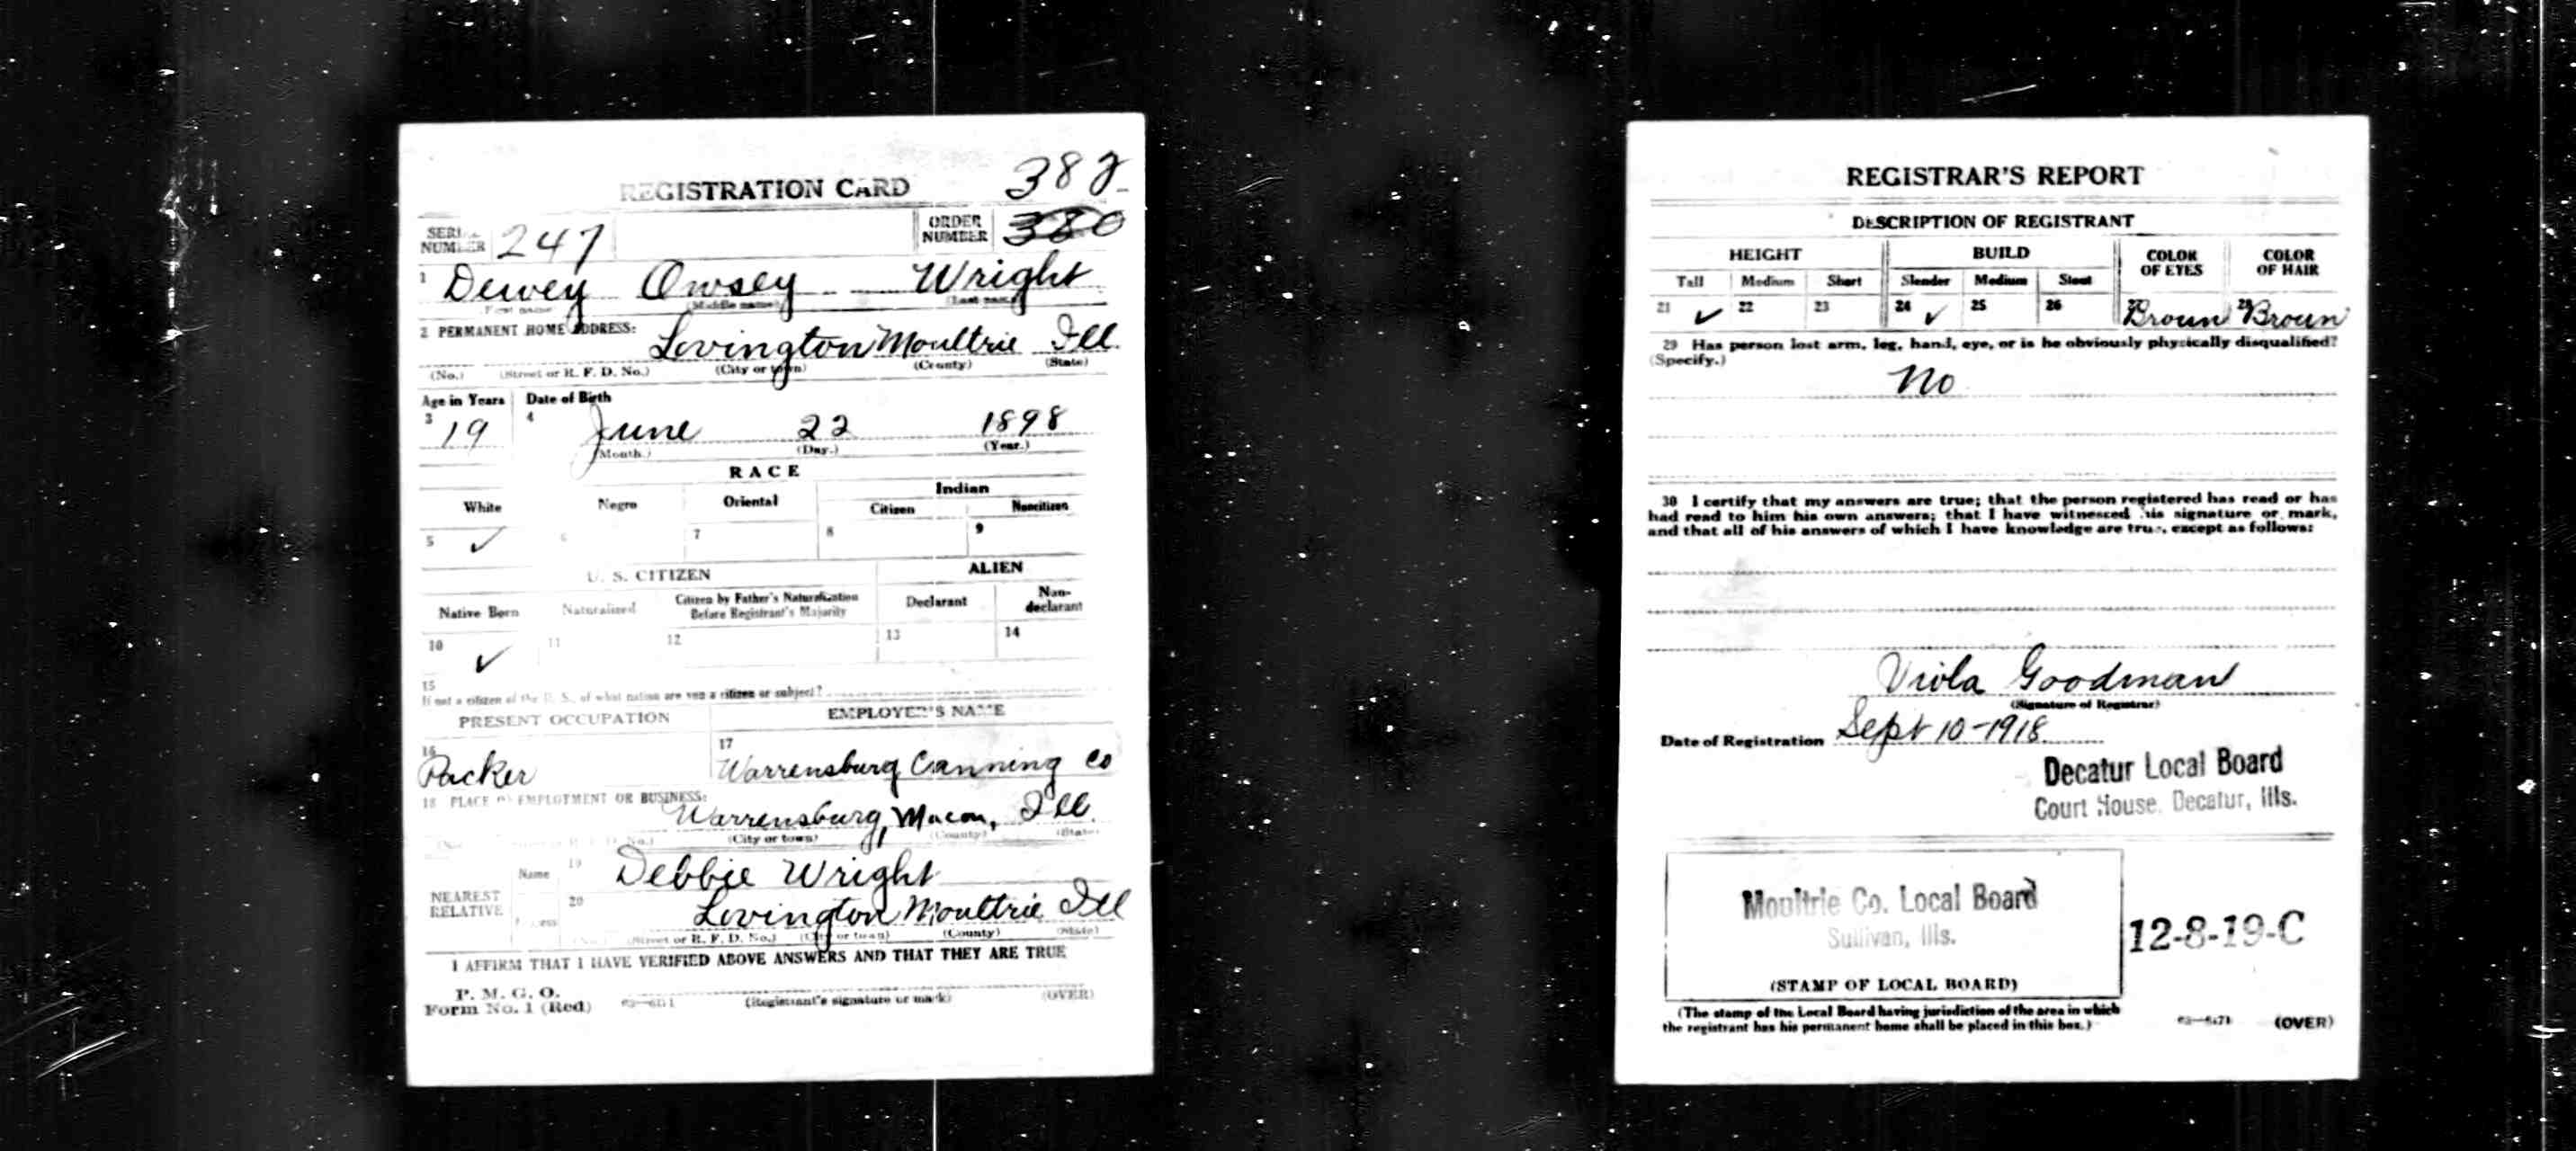 REGISTRATION CARD 382
SERIAL NUMBER 247 ORDER NUMBER 380
1 Dewey Owsey Wright
(First name) (Middle name) (Last name)
2 PERMANENT HOME ADDRESS:
Lovington Moultrie Ill.
(No.) (Street or R. F. D. No.) (City or town) (County) (State)
Age in Years Date of Birth
3 19 4 June 22 1898
(Month.) (Day.) (Year.)
RACE
White Negro Oriental Indian
Citizen Noncitizen
5 ✓ 6 7 8 9
U. S. CITIZEN ALIEN
Native Born Naturalized Citizen by Father's Naturalization Before Registrant's Majority Declarant Non-declarant
10 ✓ 11 12 13 14
15
If not a citizen of the U. S., of what nation are you a citizen or subject?
PRESENT OCCUPATION EMPLOYER'S NAME
16 Packer 17 Warrensburg Canning Co
18 PLACE OF EMPLOYMENT OR BUSINESS:
Warrensburg, Macon, Ill.
(No.) (Street or R. F. D. No.) (City or town) (County) (State)
NEAREST RELATIVE Name 19 Debbie Wright
Address 20 Lovington Moultrie Ill
(No.) (Street or R. F. D. No.) (City or town) (County) (State)
I AFFIRM THAT I HAVE VERIFIED ABOVE ANSWERS AND THAT THEY ARE TRUE
P. M. G. O.
Form No. 1 (Red) (Registrant's signature or mark) (OVER)
REGISTRAR'S REPORT
DESCRIPTION OF REGISTRANT
HEIGHT BUILD COLOR OF EYES COLOR OF HAIR
Tall Medium Short Slender Medium Stout
21 ✓ 22 23 24 ✓ 25 26 27 Broun 28 Broun
29 Has person lost arm, leg, hand, eye, or is he obviously physically disqualified?
(Specify.)
No
30 I certify that my answers are true; that the person registered has read or has
had read to him his own answers; that I have witnessed his signature or mark,
and that all of his answers of which I have knowledge are true, except as follows:
Viola Goodman
(Signature of Registrar)
Date of Registration Sept 10-1918
Decatur Local Board
Court House, Decatur, Ills.
Moultrie Co. Local Board
Sullivan, Ills.
12-8-19-C
(STAMP OF LOCAL BOARD)
(The stamp of the Local Board having jurisdiction of the area in which
the registrant has his permanent home shall be placed in this box.)
(OVER)